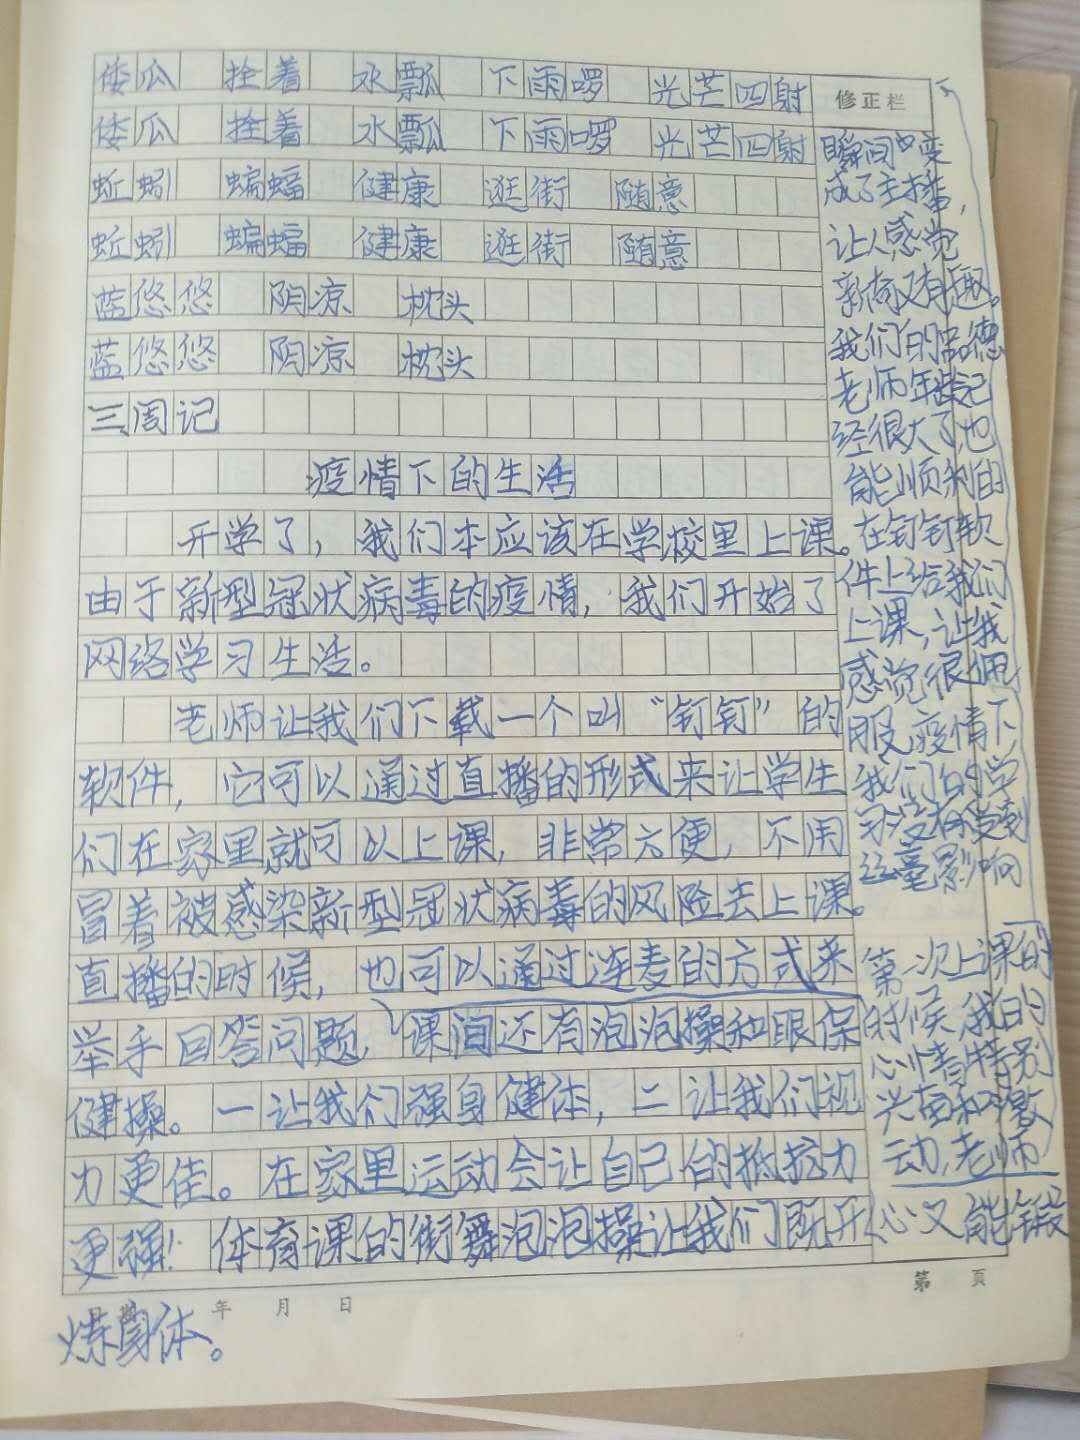 倭瓜 拴着 水瓢 下雨啰 光芒四射
倭瓜 拴着 水瓢 下雨啰 光芒四射
蚯蚓 蝙蝠 健康 逛街 随意
蚯蚓 蝙蝠 健康 逛街 随意
蓝悠悠 阴凉 枕头
蓝悠悠 阴凉 枕头
三周记
疫情下的生活
开学了，我们本应该在学校里上课。
由于新型冠状病毒的疫情，我们开始了
网络学习生活。
老师让我们下载一个叫“钉钉”的
软件，它可以通过直播的形式来让学生
们在家里就可以上课，非常方便，不用
冒着被感染新型冠状病毒的风险去上课。
直播的时候，也可以通过连麦的方式来
举手回答问题，课间还有泡泡操和眼保
健操。一让我们强身健体，二让我们视
力更佳。在家里运动会让自己的抵抗力
更强！体育课的街舞泡泡操让我们既开心又能锻
炼身体。
修正栏
瞬间变
成了主播，
让人感觉
新奇又有趣。
我们的品德
老师年龄已
经很大了也
能顺利的
在钉钉软
件上给我们
上课，让我
感觉很佩
服，疫情下
我们的学
习没有受到
丝毫影响
第一次上课的
时候，我的
心情特别
兴奋和激
动，老师
年 月 日
第 頁